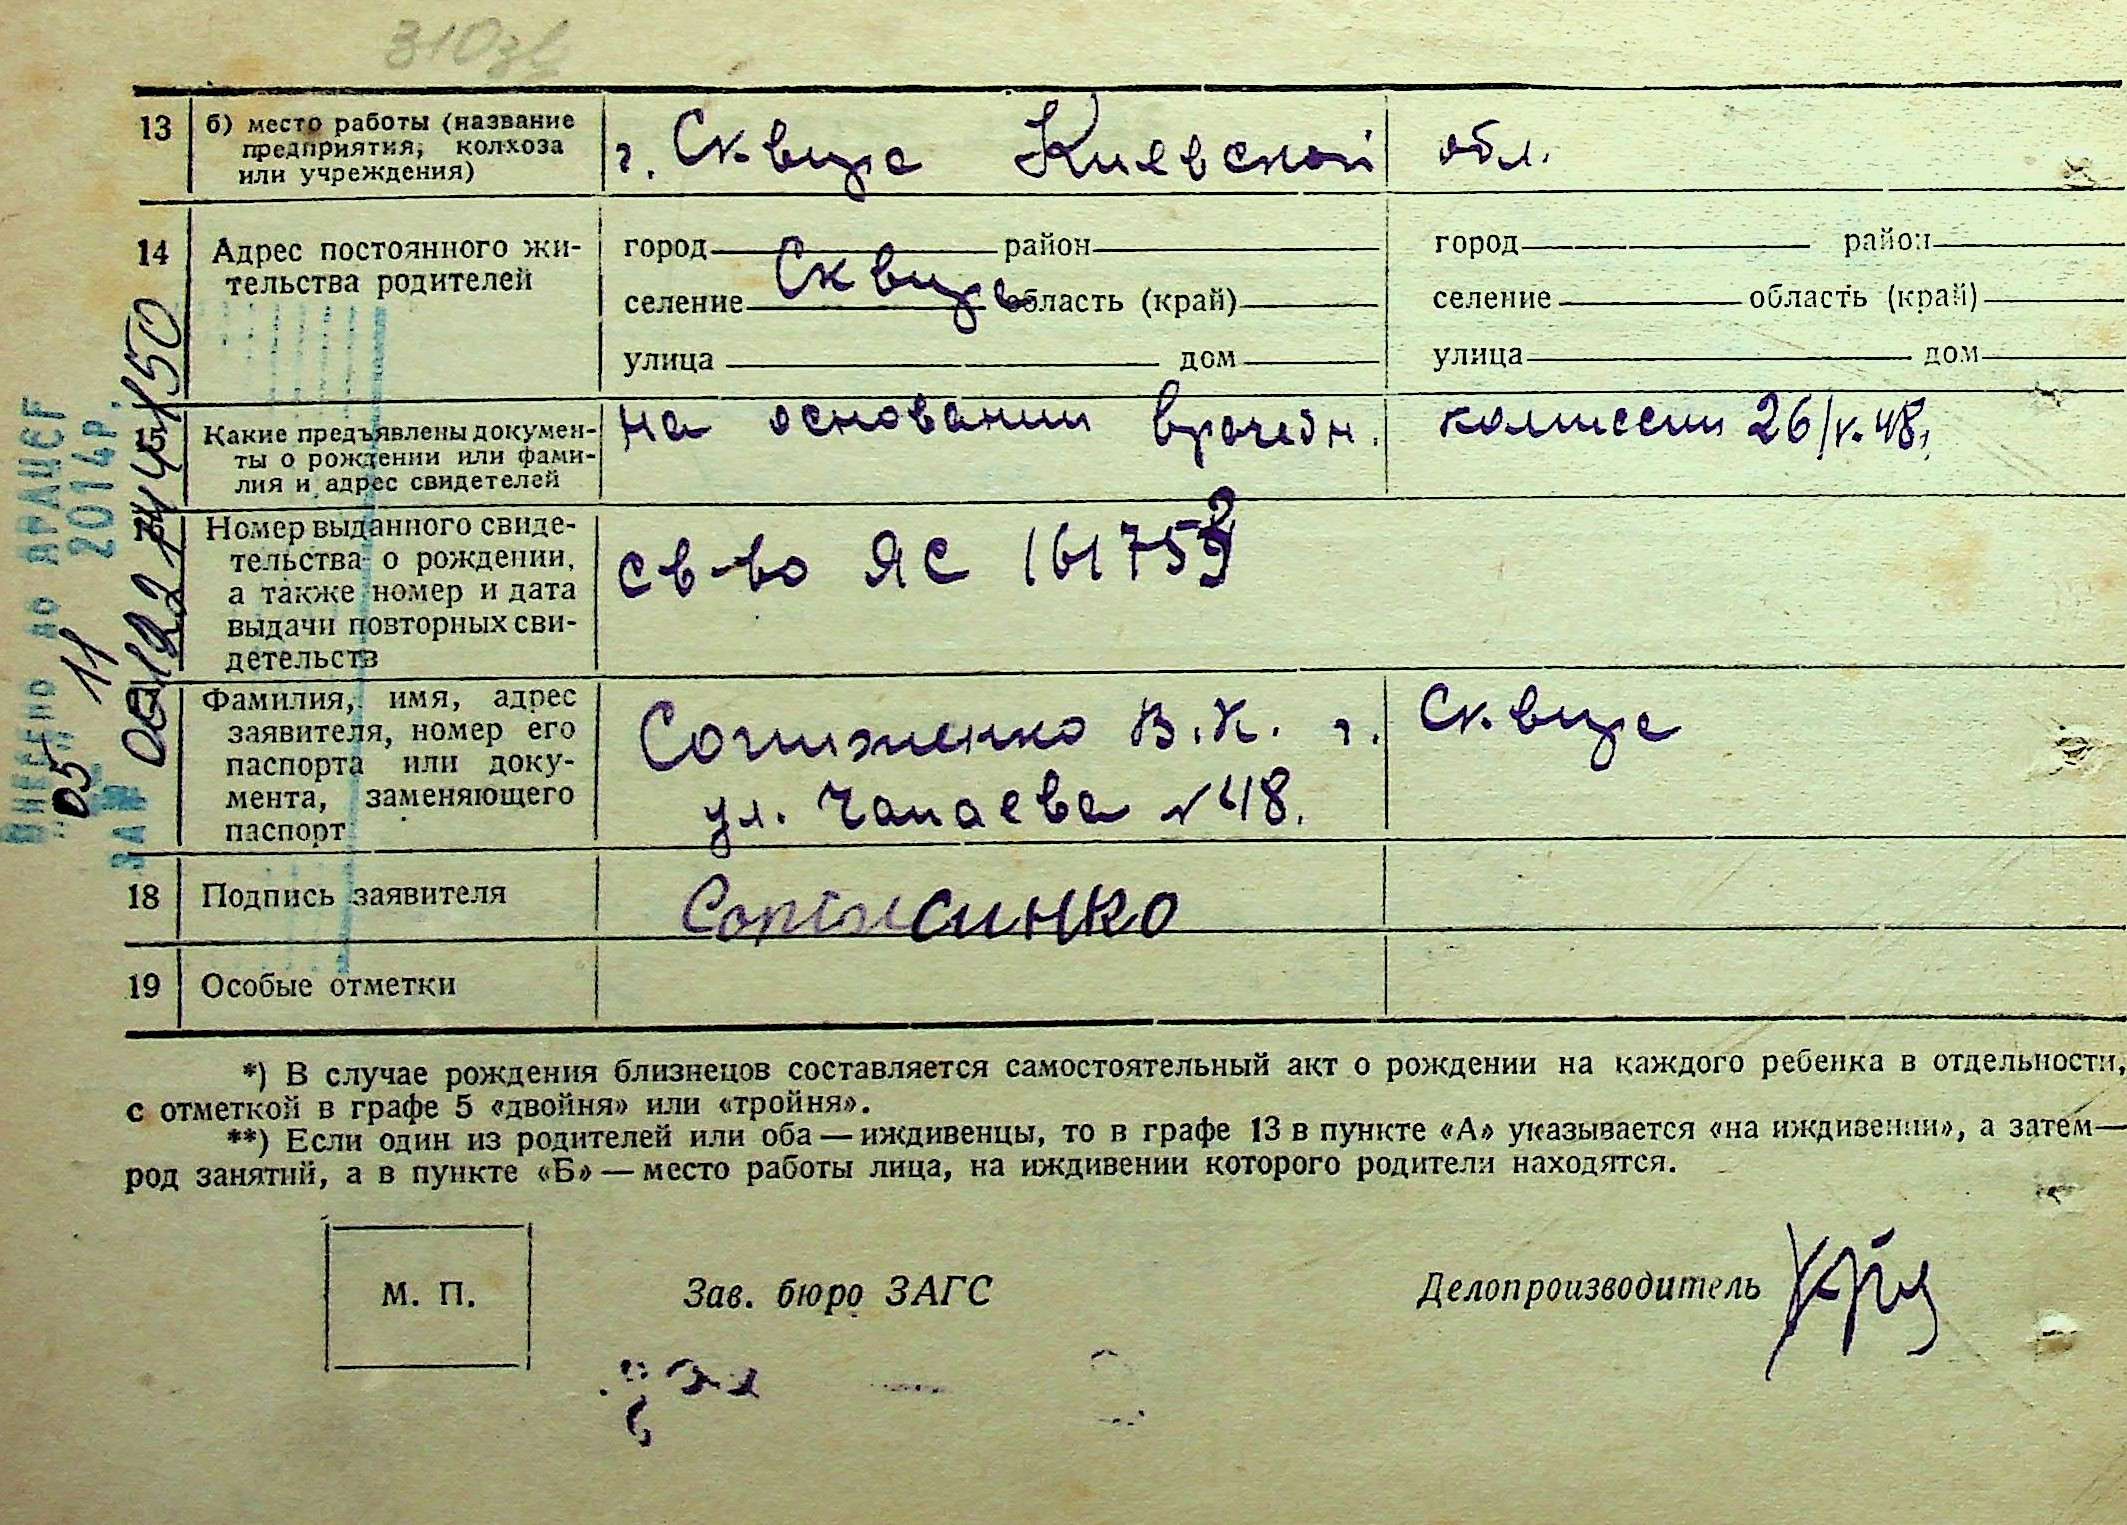 310зв
13 б) место работы (название
предприятия, колхоза
или учреждения)
г. Сквира Киевской обл.
14 Адрес постоянного жи-
тельства родителей
город район
Сквира
селение область (край)
улица дом
город район
селение область (край)
улица дом
15 Какие предъявлены докумен-
ты о рождении или фами-
лия и адрес свидетелей
на основании врачебн. комиссии
Номер выданного свиде-
тельства о рождении,
а также номер и дата
выдачи повторных сви-
детельств
св-во ЯС
Фамилия, имя, адрес
заявителя, номер его
паспорта или доку-
мента, заменяющего
паспорт
В. К. г. Сквира
ул. Чапаева № 48.
18 Подпись заявителя
19 Особые отметки
*) В случае рождения близнецов составляется самостоятельный акт о рождении на каждого ребенка в отдельности,
с отметкой в графе 5 «двойня» или «тройня».
**) Если один из родителей или оба — иждивенцы, то в графе 13 в пункте «А» указывается «на иждивении», а затем —
род занятий, а в пункте «Б» — место работы лица, на иждивении которого родители находятся.
М. П.
Зав. бюро ЗАГС
Делопроизводитель
ВНЕСЕНО ДО ДРАЦСГ
05 11 2014р.
ЗА №